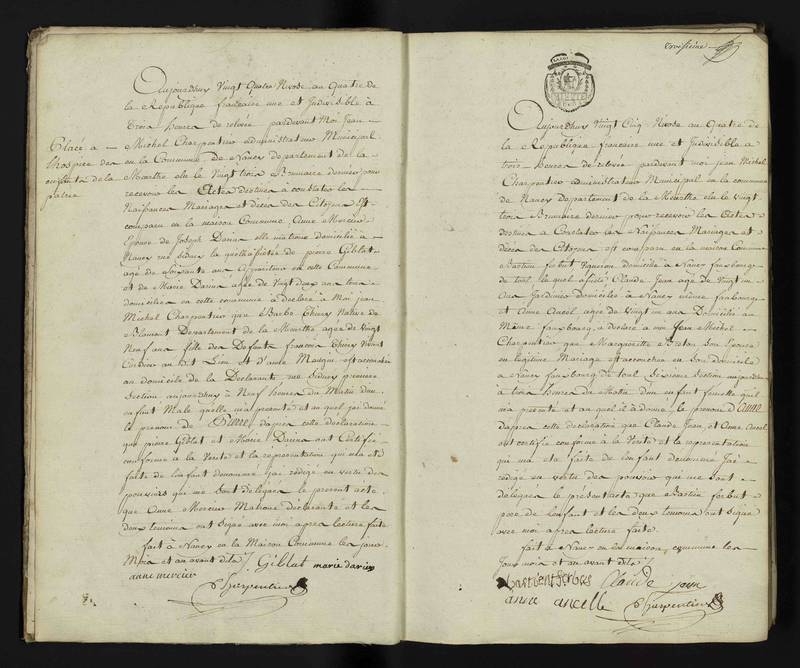 Aujourdhuy Vingt Quatre Nivose an Quatre de
la République française une et Indivisible à
trois heures de relevée pardevant Moi Jean
Michel Charpentier administrateur Municipal
en la Commune de Nancy departement de la
Meurthe elu le Vingt trois Brumaire dernier pour
recevoir les Actes destinés à constater les
Naissances Mariages et décès des Citoyens Est
comparu en la maison Commune Anne Mercier
Epouse de Joseph Darius elle matrone domiciliée à
Nancy rue Sidney la quelle assistée de pierre Giblot
agé de soixante ans en cette Commune
et de Marie Darius agée de Vingt deux ans tous
domiciliés en cette commune a déclaré à Moi jean
Michel Charpentier que Barbe Thiery Native de
Blamont Departement de la Meurthe agée de Vingt
Neuf ans fille des Defunts francois Thiery Vivant
Cordier au dit Lieu et d'anne Maugin est accouchée
au domicile de la Declarante rue Sidney premiere
Section aujourdhuy à Neuf heures du Matin d'un
enfant Male qu'elle m'a presenté et au quel j'ai donné
le prenom de Pierre d'après cette déclaration
que pierre Giblot et Marie Darius ont Certifié
conforme à la Verité et la representation qui m'a eté
faite de l'enfant denommé j'ai rédigé en vertu des
pouvoirs qui me sont delegués le present acte
que Anne Mercier Matrone declarante et les
deux temoins ont Signé avec moi apres lecture faite
fait à Nancy en la Maison Commune les jour
Mois et an avant dits J. Giblot marie darius
anne mercier
Charpentier
Placé à
lhospice des
enfants de la
patrie
troisieme
Aujourdhuy Vingt Cinq Nivose an Quatre de
la République française une et Indivisible à
trois heures de relevée pardevant moi jean Michel
Charpentier administrateur Municipal en la commune
de Nancy departement de la Meurthe elu le vingt
trois Brumaire dernier pour recevoir les Actes
destinés à Constater les Naissances Mariages et
décès des Citoyens est comparu en la maison Commune
Bastien forbut Vigneron domicilié à Nancy fauxbourg
de toul, le quel assisté Claude Jean agé de Vingt un
Ans Jardinier domicilié à Nancy même fauxbourg
et Anne Ancel agée de Vingt un ans Domiciliée au
Même fauxbourg, a déclaré à moi Jean Michel
Charpentier que Marguerite Breton Son Epouse
en légitime Mariage est accouchée en son domicile
à Nancy fauxbourg de toul Sixieme Section aujourdhuy
à trois heures du Matin d'un enfant femelle qu'il
m'a presenté et au quel il a donné le prénom d'Anne
d'après cette déclaration que Claude Jean et Anne Ancel
ont certifié conforme à la Verité et la representation
qui m'a eté faite de l'enfant denommé J'ai
rédigé en vertu des pouvoirs qui me sont
délégués le présent acte que Bastien forbut
pere de l'enfant et les deux temoins ont signé
avec moi apres lecture faite.
fait à Nancy en la maison commune les
Jour mois et an avant dits
Claude jean
anne ancelle Charpentier